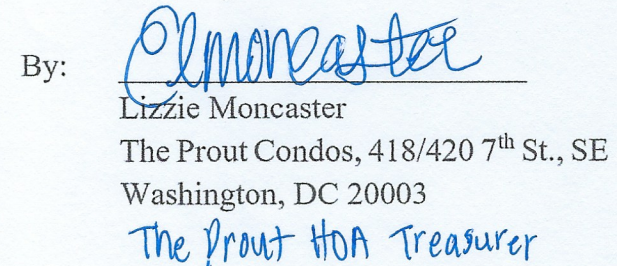 By: Elmoncaster
Lizzie Moncaster
The Prout Condos, 418/420 7th St., SE
Washington, DC 20003
The Prout HOA Treasurer